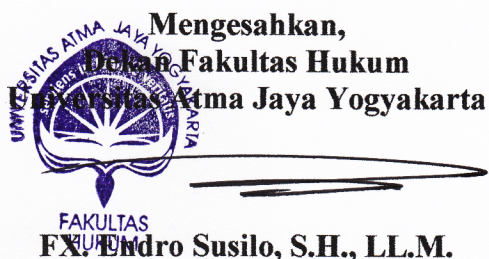 Mengesahkan,
Dekan Fakultas Hukum
Universitas Atma Jaya Yogyakarta
UNIVERSITAS ATMA JAYA YOGYAKARTA
FAKULTAS
HUKUM
FX. Endro Susilo, S.H., LL.M.